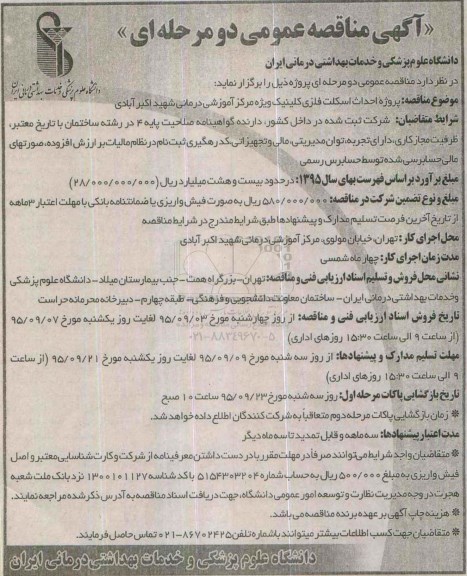 «آگهی مناقصه عمومی دو مرحله ای»
دانشگاه علوم پزشکی و خدمات بهداشتی درمانی ایران
دانشگاه علوم پزشکی و خدمات بهداشتی درمانی ایران
در نظر دارد مناقصه عمومی دو مرحله ای پروژه ذیل را برگزار نماید:
موضوع مناقصه: پروژه احداث اسکلت فلزی کلینیک ویژه مرکز آموزشی درمانی شهید اکبرآبادی
شرایط متقاضیان: شرکت ثبت شده در داخل کشور، دارنده گواهینامه صلاحیت پایه ۴ در رشته ساختمان با تاریخ معتبر،
ظرفیت مجاز کاری، دارای تجربه، توان مدیریتی، مالی و تجهیزاتی، کد رهگیری ثبت نام در نظام مالیات بر ارزش افزوده، صورتهای
مالی حسابرسی شده توسط حسابرس رسمی
مبلغ برآورد بر اساس فهرست بهای سال ۱۳۹۵: در حدود بیست و هشت میلیارد ریال (۲۸/۰۰۰/۰۰۰/۰۰۰)
مبلغ و نوع تضمین شرکت در مناقصه: ۵۸۰/۰۰۰/۰۰۰ ریال به صورت فیش واریزی یا ضمانتنامه بانکی با مهلت اعتبار ۳ ماهه
از تاریخ آخرین فرصت تسلیم مدارک و پیشنهادها طبق شرایط مندرج در شرایط مناقصه
محل اجرای کار: تهران، خیابان مولوی، مرکز آموزشی درمانی شهید اکبرآبادی
مدت زمان اجرای کار: چهار ماه شمسی
نشانی محل فروش و تسلیم اسناد ارزیابی فنی و مناقصه: تهران - بزرگراه همت - جنب بیمارستان میلاد - دانشگاه علوم پزشکی
وخدمات بهداشتی درمانی ایران - ساختمان معاونت دانشجویی و فرهنگی - طبقه چهارم - دبیرخانه محرمانه حراست
تاریخ فروش اسناد ارزیابی فنی و مناقصه: از روز چهارشنبه مورخ ۹۵/۰۹/۰۳ لغایت روز یکشنبه مورخ ۹۵/۰۹/۰۷
(از ساعت ۹ الی ساعت ۱۵:۳۰ روزهای اداری)
مهلت تسلیم مدارک و پیشنهادها: از روز سه شنبه مورخ ۹۵/۰۹/۰۹ لغایت روز یکشنبه مورخ ۹۵/۰۹/۲۱ (از ساعت
۹ الی ساعت ۱۵:۳۰ روزهای اداری)
تاریخ بازگشایی پاکات مرحله اول: روز سه شنبه مورخ ۹۵/۰۹/۲۳ ساعت ۱۰ صبح
* زمان بازگشایی پاکات مرحله دوم متعاقباً به شرکت کنندگان اطلاع داده خواهد شد.
مدت اعتبار پیشنهادها: سه ماهه و قابل تمدید تا سه ماه دیگر
* متقاضیان واجد شرایط می توانند صرفاً در مهلت مقرر با در دست داشتن معرفینامه از شرکت و کارت شناسایی معتبر و اصل
فیش واریزی به مبلغ ۵۰۰/۰۰۰ ریال به حساب شماره ۵۱۵۴۳۰۳۲۰۴ با کد شناسه ۱۳۰۰۱۰۱۱۲۷ نزد بانک ملت شعبه
هجرت در وجه مدیریت نظارت و توسعه امور عمومی دانشگاه، جهت دریافت اسناد مناقصه به آدرس ذکر شده مراجعه نمایند.
* هزینه چاپ آگهی بر عهده برنده مناقصه می باشد.
* متقاضیان جهت کسب اطلاعات بیشتر میتوانند با شماره تلفن ۸۶۷۰۲۴۲۵-۰۲۱ تماس حاصل فرمایند.
دانشگاه علوم پزشکی و خدمات بهداشتی درمانی ایران